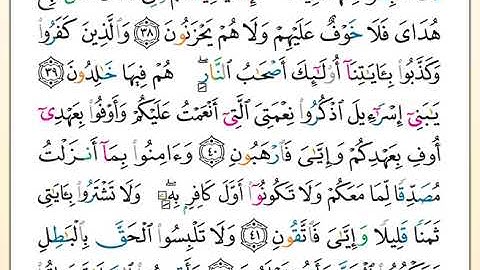 هُدَاىَ فَلَا خَوْفٌ عَلَيْهِمْ وَلَا هُمْ يَحْزَنُونَ ٣٨ وَٱلَّذِينَ كَفَرُوا۟
وَكَذَّبُوا۟ بِـَٔايَـٰتِنَآ أُو۟لَـٰٓئِكَ أَصْحَـٰبُ ٱلنَّارِ ۖ هُمْ فِيهَا خَـٰلِدُونَ ٣٩
يَـٰبَنِىٓ إِسْرَٰٓءِيلَ ٱذْكُرُوا۟ نِعْمَتِىَ ٱلَّتِىٓ أَنْعَمْتُ عَلَيْكُمْ وَأَوْفُوا۟ بِعَهْدِىٓ
أُوفِ بِعَهْدِكُمْ وَإِيَّـٰىَ فَٱرْهَبُونِ ٤٠ وَءَامِنُوا۟ بِمَآ أَنزَلْتُ
مُصَدِّقًا لِّمَا مَعَكُمْ وَلَا تَكُونُوٓا۟ أَوَّلَ كَافِرٍۭ بِهِۦ ۖ وَلَا تَشْتَرُوا۟ بِـَٔايَـٰتِى
ثَمَنًا قَلِيلًا وَإِيَّـٰىَ فَٱتَّقُونِ ٤١ وَلَا تَلْبِسُوا۟ ٱلْحَقَّ بِٱلْبَـٰطِلِ